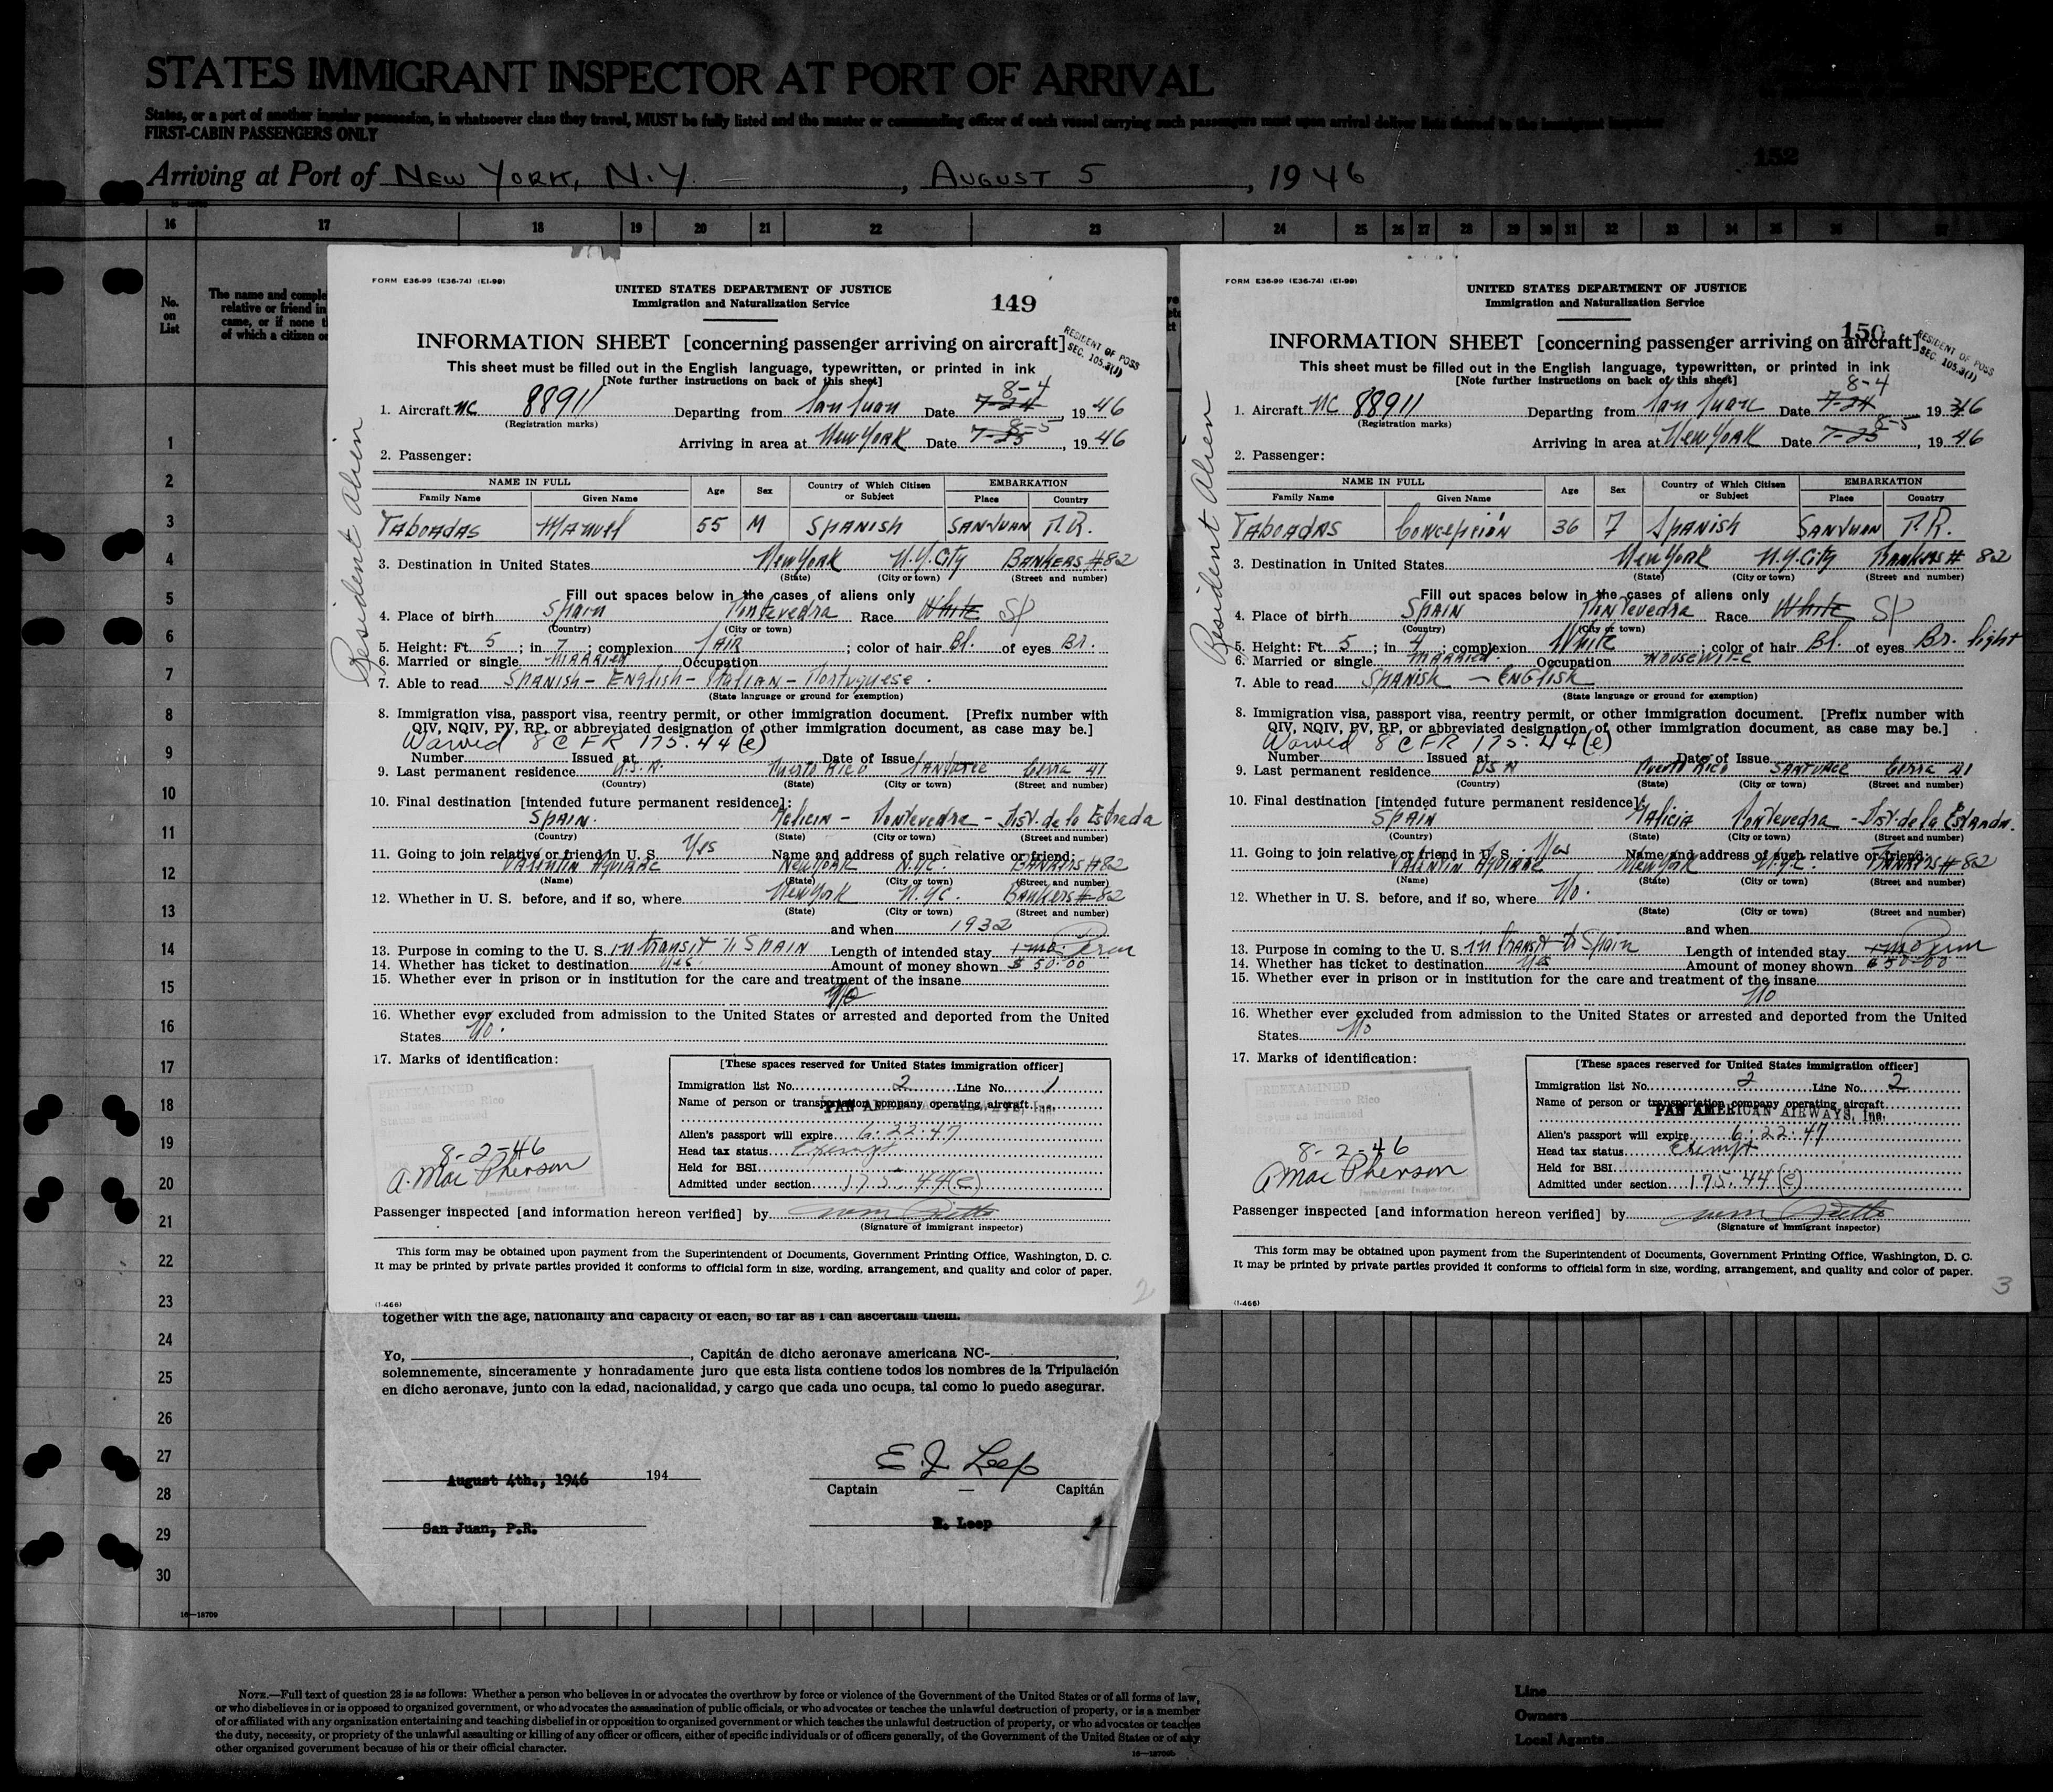 STATES IMMIGRANT INSPECTOR AT PORT OF ARRIVAL
States, or a port of another insular possession, in whatsoever class they travel, MUST be fully listed and the master or commanding officer of each vessel carrying such passengers must upon arrival deliver lists thereof to the immigrant inspector
FIRST-CABIN PASSENGERS ONLY
152
Arriving at Port of NEW YORK, N.Y. , AUGUST 5 , 19 46
16 17 18 19 20 21 22 23 24 25 26 27 28 29 30 31 32 33 34 35 36 37
No. on List
The name and comple
relative or friend in
came, or if none t
of which a citizen o
1
2
3
4
5
6
7
8
9
10
11
12
13
14
15
16
17
18
19
20
21
22
23
24
25
26
27
28
29
30
16—18709
FORM E36-99 (E36-74) (EI-99)
UNITED STATES DEPARTMENT OF JUSTICE
Immigration and Naturalization Service
149
INFORMATION SHEET [concerning passenger arriving on aircraft]
RESIDENT OF POSS
SEC. 105.3(J)
This sheet must be filled out in the English language, typewritten, or printed in ink
[Note further instructions on back of this sheet]
Resident Alien
8-4
1. Aircraft NC 88911 Departing from San Juan Date 7-24 19 46
(Registration marks)
8-5
Arriving in area at New York Date 7-25, 19 46
2. Passenger:
NAME IN FULL Age Sex Country of Which Citizen or Subject EMBARKATION
Family Name Given Name Place Country
TABOADAS Manuel 55 M SPANISH SANJUAN P.R.
3. Destination in United States New York N.Y. City BANKERS #82
(State) (City or town) (Street and number)
Fill out spaces below in the cases of aliens only
4. Place of birth Spain Pontevedra Race White SP
(Country) (City or town)
5. Height: Ft. 5 ; in 7 ; complexion FAIR ; color of hair Bl. of eyes Br.
6. Married or single MARRIED Occupation
7. Able to read SPANISH - ENGLISH - ITALIAN - Portuguese.
(State language or ground for exemption)
8. Immigration visa, passport visa, reentry permit, or other immigration document. [Prefix number with
QIV, NQIV, PV, RP, or abbreviated designation of other immigration document, as case may be.]
Waived 8 CFR 175.44(e)
Number Issued at Date of Issue
9. Last permanent residence U.S.A. Puerto Rico Santurce Cerra 41
(Country) (State) (City or town) (Street and number)
10. Final destination [intended future permanent residence]:
SPAIN. Galicia - Pontevedra - Dist. de la Estrada
(Country) (State) (City or town) (Street and number)
11. Going to join relative or friend in U. S. Yes Name and address of such relative or friend:
New York N.Y.C. BANKERS #82
(Name) (State) (City or town) (Street and number)
12. Whether in U. S. before, and if so, where New York N.Y.C. Bankers #82
(State) (City or town) (Street and number)
and when 1932
13. Purpose in coming to the U. S. in transit to SPAIN Length of intended stay 1 mo. Perm
14. Whether has ticket to destination Yes. Amount of money shown $ 50.00
15. Whether ever in prison or in institution for the care and treatment of the insane
No
16. Whether ever excluded from admission to the United States or arrested and deported from the United
States No.
17. Marks of identification:
PREEXAMINED
8-2-46
A. MacPherson
Immigrant Inspector.
[These spaces reserved for United States immigration officer]
Immigration list No. 2 Line No. 1
Name of person or transportation company operating aircraft
PAN AMERICAN AIRWAYS, Inc.
Alien's passport will expire 6:22:47
Head tax status Exempt
Held for BSI
Admitted under section 175.44(e)
Passenger inspected [and information hereon verified] by
(Signature of immigrant inspector)
This form may be obtained upon payment from the Superintendent of Documents, Government Printing Office, Washington, D. C.
It may be printed by private parties provided it conforms to official form in size, wording, arrangement, and quality and color of paper.
2
(I-466)
FORM E36-99 (E36-74) (EI-99)
UNITED STATES DEPARTMENT OF JUSTICE
Immigration and Naturalization Service
150
INFORMATION SHEET [concerning passenger arriving on aircraft]
RESIDENT OF POSS
SEC. 105.3(J)
This sheet must be filled out in the English language, typewritten, or printed in ink
[Note further instructions on back of this sheet]
Resident Alien
8-4
1. Aircraft NC 88911 Departing from San Juan Date 7-24 19 46
(Registration marks)
8-5
Arriving in area at New York Date 7-25, 19 46
2. Passenger:
NAME IN FULL Age Sex Country of Which Citizen or Subject EMBARKATION
Family Name Given Name Place Country
TABOADAS Concepción 36 F SPANISH SANJUAN P.R.
3. Destination in United States New York N.Y. City Bankers # 82
(State) (City or town) (Street and number)
Fill out spaces below in the cases of aliens only
4. Place of birth SPAIN Pontevedra Race White SP
(Country) (City or town)
5. Height: Ft. 5 ; in 4 ; complexion White ; color of hair Bl. of eyes Br. light
6. Married or single MARRIED. Occupation HOUSEWIFE
7. Able to read SPANISH - ENGLISH
(State language or ground for exemption)
8. Immigration visa, passport visa, reentry permit, or other immigration document. [Prefix number with
QIV, NQIV, PV, RP, or abbreviated designation of other immigration document, as case may be.]
Waived 8 CFR 175.44(e)
Number Issued at Date of Issue
9. Last permanent residence USA Puerto Rico SANTURCE Cerra 41
(Country) (State) (City or town) (Street and number)
10. Final destination [intended future permanent residence]:
SPAIN Galicia Pontevedra - Dist. de la Estrada.
(Country) (State) (City or town) (Street and number)
11. Going to join relative or friend in U. S. Yes Name and address of such relative or friend:
New York N.Y.C. BANKERS # 82
(Name) (State) (City or town) (Street and number)
12. Whether in U. S. before, and if so, where No.
(State) (City or town) (Street and number)
and when
13. Purpose in coming to the U. S. in transit to Spain Length of intended stay 1 mo Perm
14. Whether has ticket to destination Yes Amount of money shown $ 50.00
15. Whether ever in prison or in institution for the care and treatment of the insane
No
16. Whether ever excluded from admission to the United States or arrested and deported from the United
States No
17. Marks of identification:
PREEXAMINED
San Juan, Puerto Rico
Status as indicated
8-2-46
A MacPherson
Immigrant Inspector.
[These spaces reserved for United States immigration officer]
Immigration list No. 2 Line No. 2
Name of person or transportation company operating aircraft
PAN AMERICAN AIRWAYS, Inc.
Alien's passport will expire 6:22:47
Head tax status Exempt
Held for BSI
Admitted under section 175.44(e)
Passenger inspected [and information hereon verified] by
(Signature of immigrant inspector)
This form may be obtained upon payment from the Superintendent of Documents, Government Printing Office, Washington, D. C.
It may be printed by private parties provided it conforms to official form in size, wording, arrangement, and quality and color of paper.
3
(I-466)
together with the age, nationality and capacity of each, so far as I can ascertain them.
Yo, , Capitán de dicho aeronave americana NC- ,
solemnemente, sinceramente y honradamente juro que esta lista contiene todos los nombres de la Tripulación
en dicho aeronave, junto con la edad, nacionalidad, y cargo que cada uno ocupa, tal como lo puedo asegurar.
E. J. Leep
August 4th., 1946 194
Captain — Capitán
San Juan, P.R. E. Leep
NOTE.—Full text of question 28 is as follows: Whether a person who believes in or advocates the overthrow by force or violence of the Government of the United States or of all forms of law,
or who disbelieves in or is opposed to organized government, or who advocates the assassination of public officials, or who advocates or teaches the unlawful destruction of property, or is a member
of or affiliated with any organization entertaining and teaching disbelief in or opposition to organized government or which teaches the unlawful destruction of property, or who advocates or teaches
the duty, necessity, or propriety of the unlawful assaulting or killing of any officer or officers, either of specific individuals or of officers generally, of the Government of the United States or of any
other organized government because of his or their official character.
Line
Owners
Local Agents